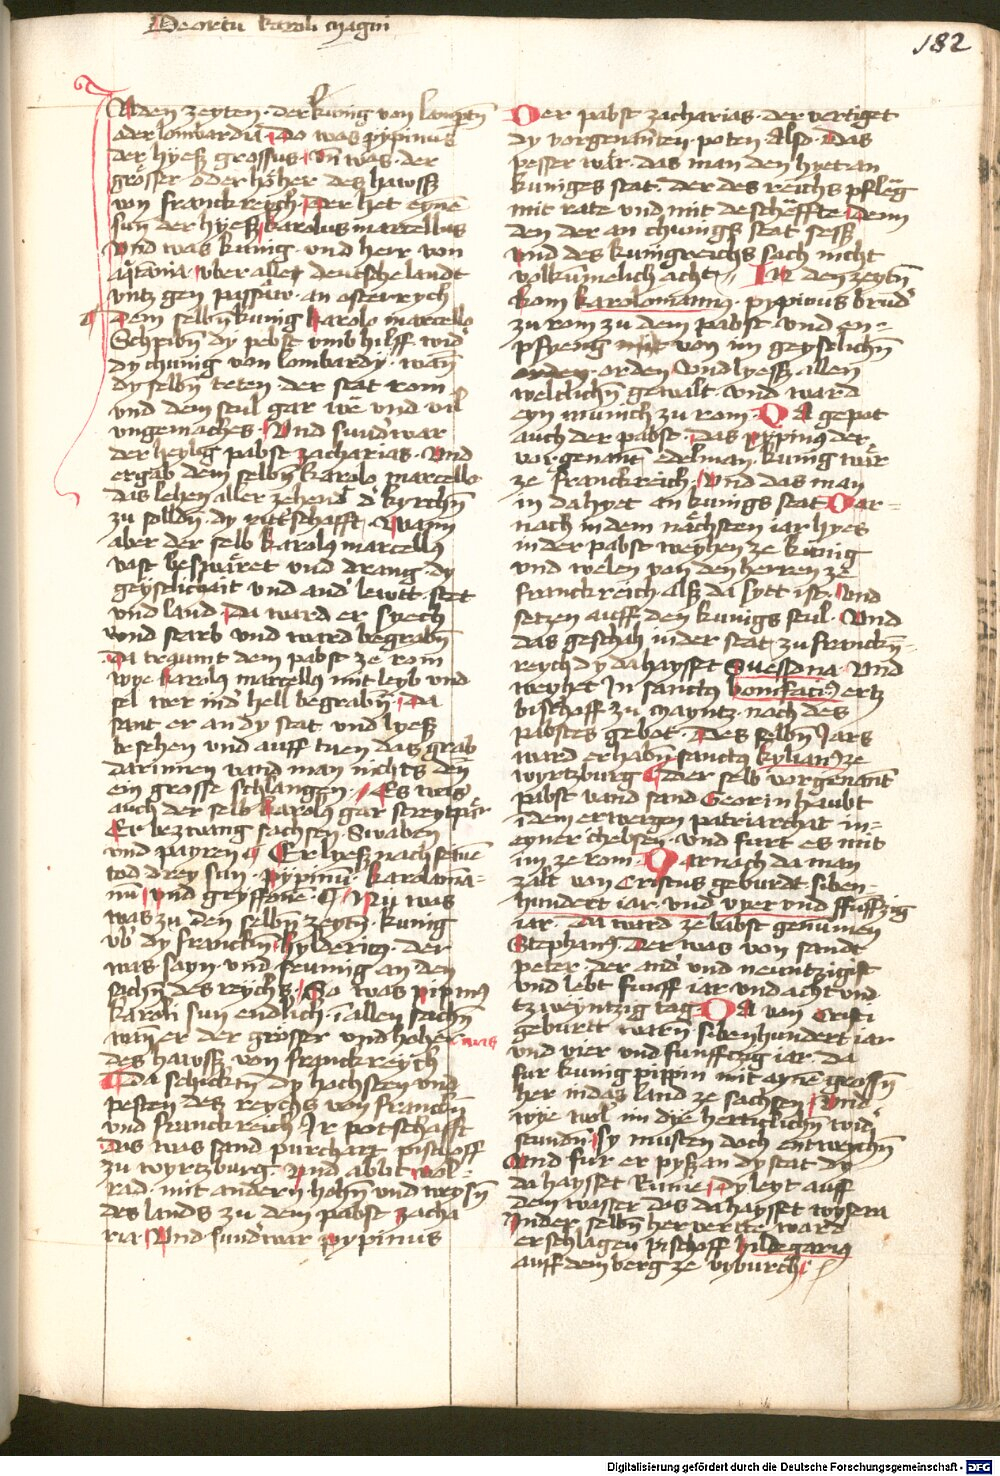 De ortu karoli magni
182
IN den zeyten · der kunig von lamptn̄
oder lombardia Do was pypinus
der hyesß grossus · Un̄ was · der
grosser oder hoher des hawsß
von franckreych · Der het eynē
sun der hyesß karolus marcellus
Und was kunig · und herr von
aqitania · uber alle deutsche landt
untz gen passaw · an osterrych
Dem selbn̄ kunig karolo marcello
Schribn̄ dy pebst umb hilff wid'
dy chunig von lombardy · wan̄
dy selbn̄ teten der stat rom
und dem stul gar we und vil
ungemaches · Und sund'war
der heylig pabst zacharias · Und
ergab dem selbn̄ karolo marcello
das lehen aller zehend d' kyrchn̄
zu solldn̄ · dy ritt'schafft · Wann
aber der selb karolus marcellus
vast beswäret und drang · dy
geystlichait und and' lewtt · stet
und land · Da ward er syech
und starb und ward begrabn̄
Da traumt dem pabst ze rom
wye karolus marcellus mit leyb und
sel wer in d' hell begrabn̄ · Da
sant er an dy stat und lyesß
besehen und auff tuen das grab
darinnen vand man nichts den̄
ein grosse schlangen · Es was
auch der selb karolus gar streytpär
Er bezwang sachsen · Swaben
und payren · Er lyesß nach seinē
tod drey sun · pypinū · karolomā-
nū · und gryffonē · Nu was
was zu den selbn̄ zeytn̄ · kunig
ub' dy franckn̄ hyldericus · der
was sayn · und frumig an den
sachn̄ des reychs · So was pipinus
karoli sun endlich · in allen sachn̄
wan̄ er der grosser und hoher was
des hawsß von franckreych
Da schicktn̄ dy hochsten und
pesten des reychs von franckn̄
und franckreich Ir potschafft
Das was sand purchart pischoff
zu wyrtzburg Und abbt wol-
rad · mit andern hohn̄ und weysn̄
des lands zu dem pabst zacha
ria · Und sund'war pypinus
Der pabst zacharias · der vertiget
dy vorgenan̄ten · poten Also · Das
pesser wär · das man den hyet an
kuniges stat · der des reichs pfleg
mit rate und mit de scheffte · Denn
den der an chunigs stat sesß
und des kunigreichs sach nicht
volkumelich acht · In den zeytn̄
kom karolomannus · pypinus brud'
zu rom zu dem pabst · und en-
pfyeng von im geystlichn̄
orden · Und lyesß · allen
weltlichn̄ gewalt · und ward
eyn munich zu rom · Da gepot
auch der pabst · das pypinus der
vorgenant edelman · kunig wär
ze franckreich · Und das man
in da hyet an kunigs stat Dar-
nach in dem nächsten iar hyes
in der pabst weyhen ze kunig
und welen von den herren ze
franckreich alsß da sytt ist · Und
setzen auff den kunigs stul · Und
das geschah in der stat zu franckn̄-
reych dy da haysset Quessdna · Und
weyhet In sanctus bonifacius ertz
bischoff zu mayntz · nach des
pabstes gebot · Des selbn̄ Jars
ward erhabn̄ sanctus kylianus ze
wyrtzburg Der selb vorgenant
pabst vand sand Georin haubt
in dem erwergen patriarchat in-
eyner chebsen · und furt es mit
im ze rom · Darnach da man
zalt von Cristus geburdt · siben-
hundert iar und vyer und ffuffzig
iar · da ward ze babst genumen
Stephanus Der was von sandt
peter · der and' und newntzigist
und lebt funff iar · und acht und
tzweyntzig tag · Da von Cristi
geburtt warn̄ sibenhundert iar
und vier und funfftzig iar · da
fur kunig pippin mit aynē grossn̄
her in das land ze sachsen · Und
wye wol im dye hertticklichn̄ wid'
stundn̄ · sy musten doch entweychn̄
Und fur er pysß an dy stat dy
da haysset Rimie · Dy leyt auff
dem wasser das da haysset wysera
In der selbn̄ hervertte ward
erschlagen pischoff hildegarius
auff dem berg ze vyburch
Digitalisierung gefördert durch die Deutsche Forschungsgemeinschaft - DFG